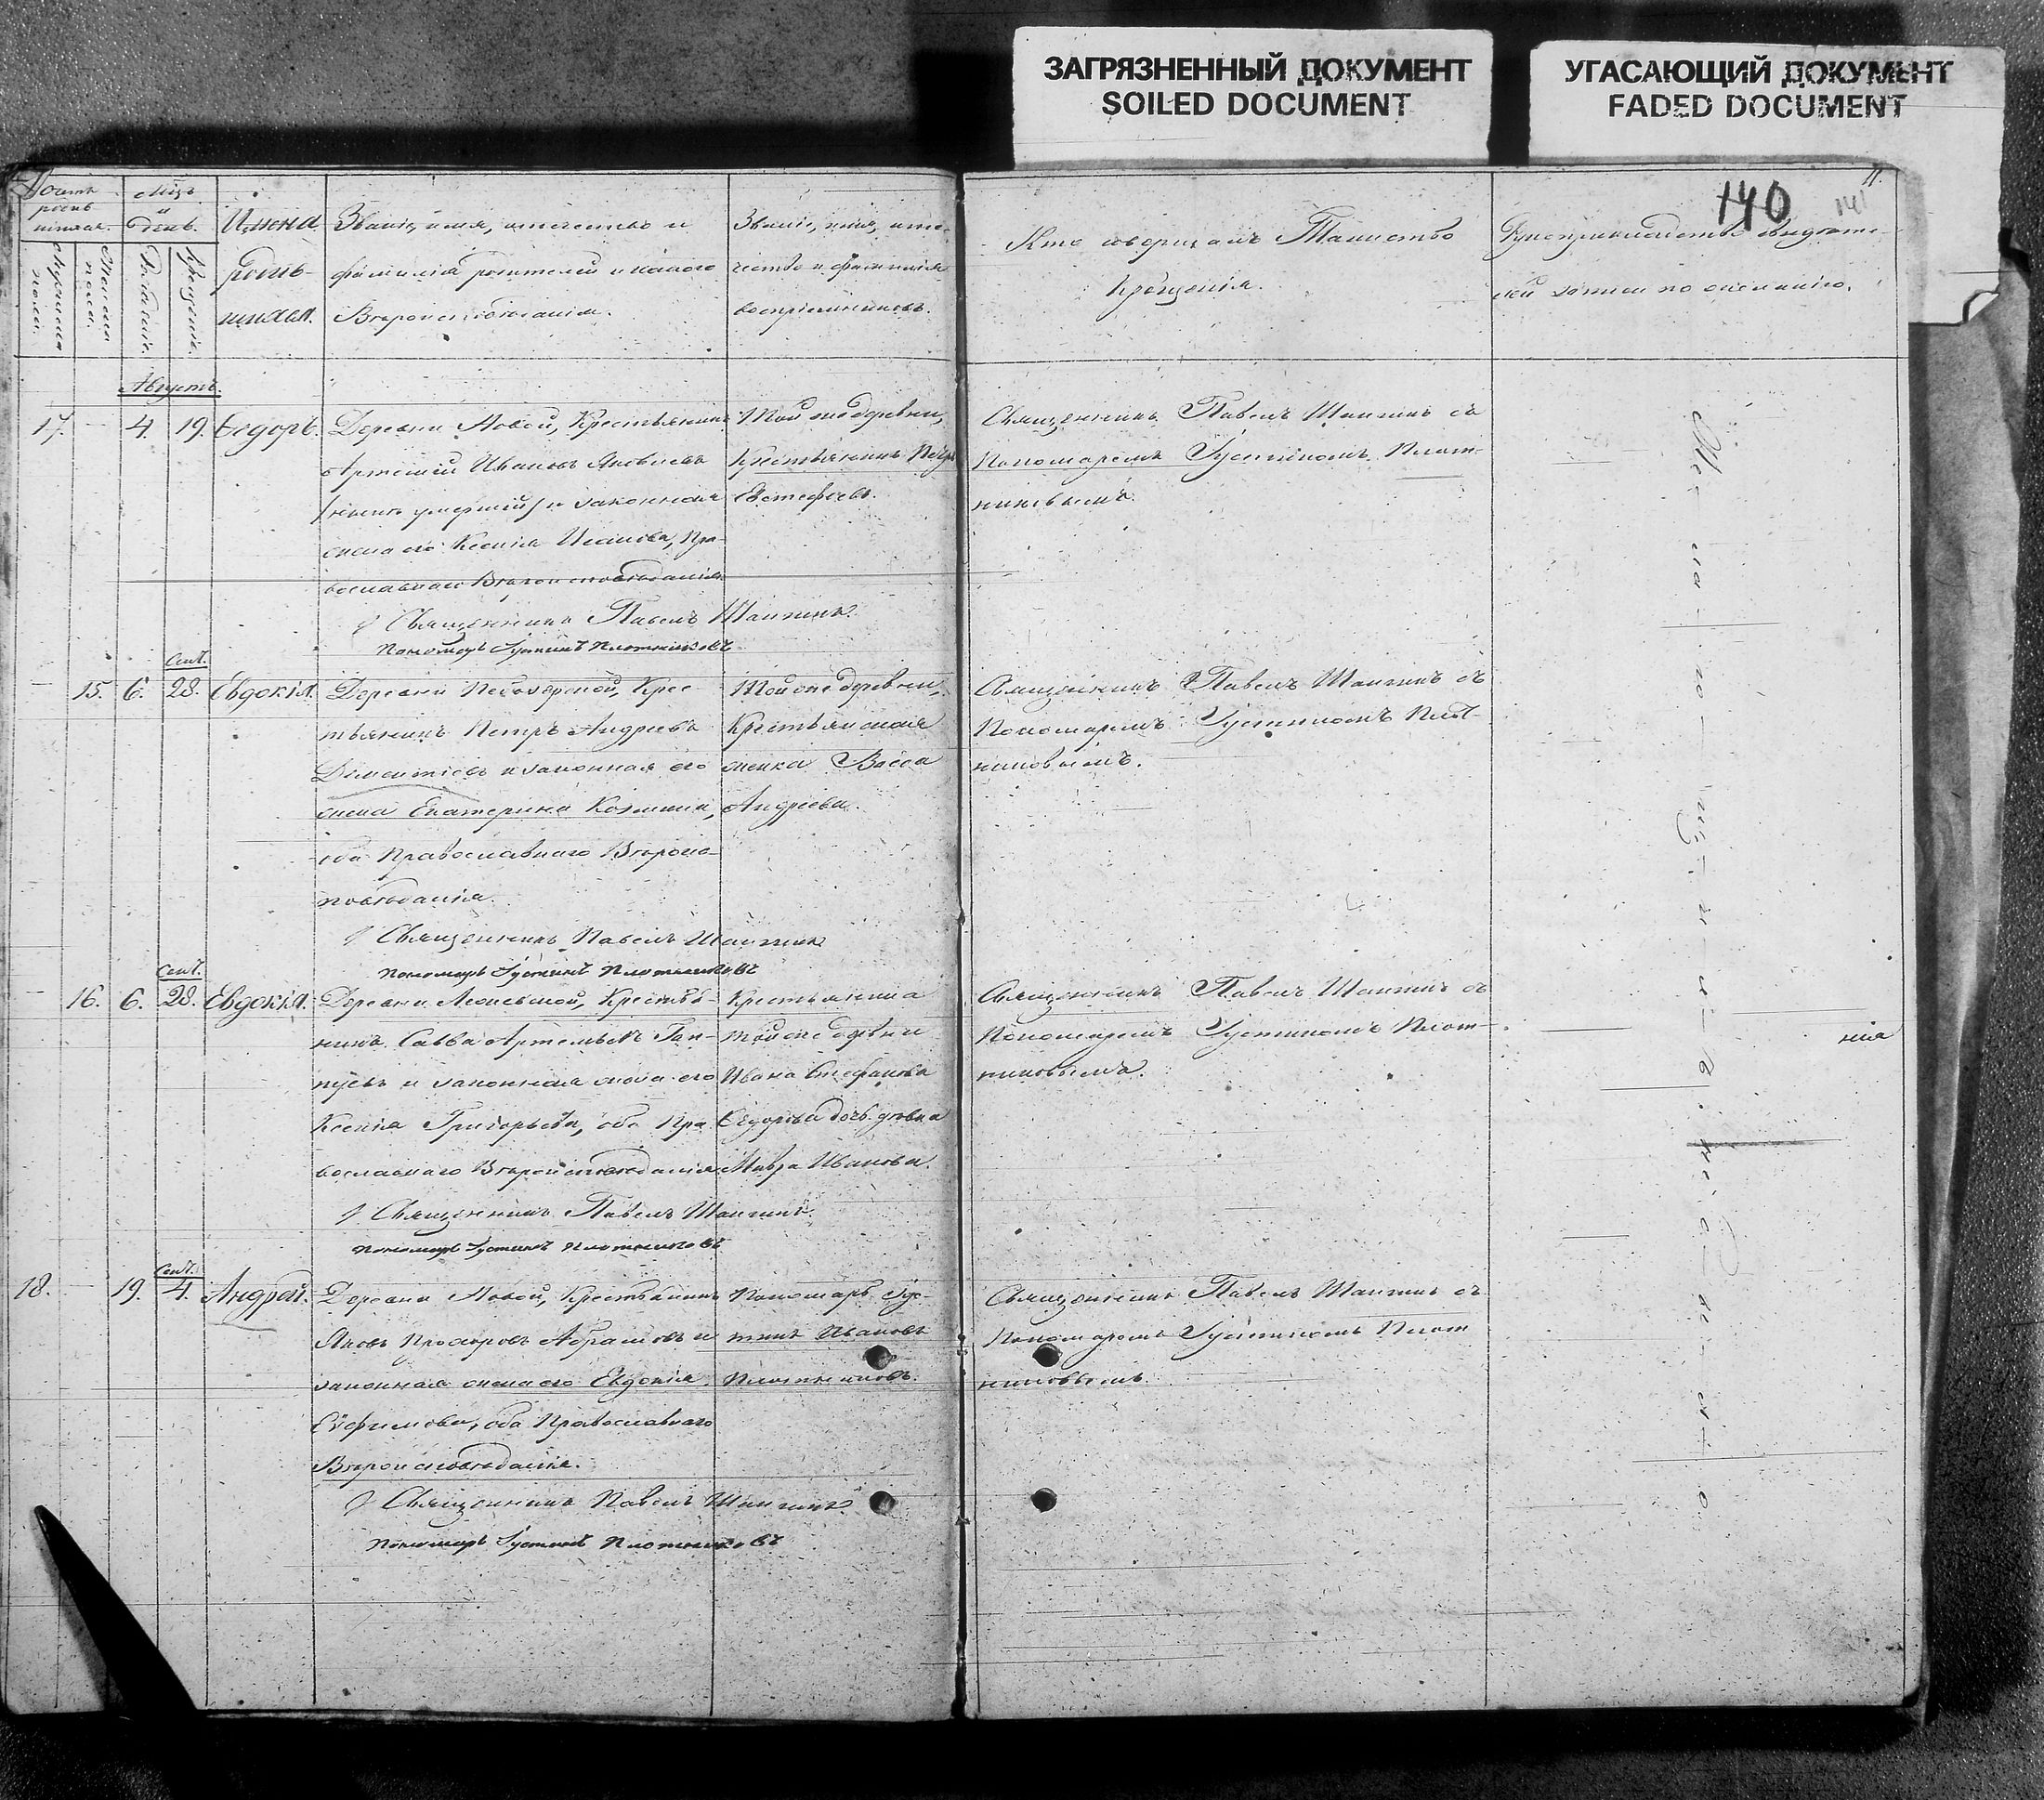 ЗАГРЯЗНЕННЫЙ ДОКУМЕНТ
SOILED DOCUMENT
УГАСАЮЩИЙ ДОКУМЕНТ
FADED DOCUMENT
140
141
11.
Счетъ родившихся.
Мужеска пола.
Женска пола.
Мѣц. и день.
Рожденiя.
Крещенiя.
Имена родившихся.
Званiе, имя, отчество и
фамилiя родителей и какого
Вѣроисповѣданiя.
Званiе, имя, отче-
ство и фамилiя
воспрiемниковъ.
Кто совершалъ Таинство
Крещенiя.
Рукоприкладство свидѣте-
лей записи по желанiю.
Августъ.
17. - 4. 19. Ѳедоръ.
Деревни Новой, Крестьянинъ
Артемiй Ивановъ Яковлевъ
умершiй и законная
жена его Ксенiя Исакова, Пра-
вославнаго Вѣроисповѣданiя
Священникъ Павелъ Шангинъ.
Пономарь Іустинъ Плотниковъ
Той же деревни,
Крестьянинъ Петръ
Евстафьевъ.
Священникъ Павелъ Шангинъ съ
Пономаремъ Іустиномъ Плот-
никовымъ.
Сент.
- 15. 6. 28. Евдокiя.
Деревни Крес
тьянинъ Петръ Андреевъ
Дементьевъ и законная его
жена Екатерина Козмина,
оба Православнаго Вѣроис-
повѣданiя.
Священникъ Павелъ Шангинъ
Пономарь Іустинъ Плотниковъ
Той же деревни,
Крестьянская
женка Васса
Андреева.
Священникъ Павелъ Шангинъ съ
Пономаремъ Іустиномъ Плот-
никовымъ.
Сент.
- 16. 6. 28. Евдокiя.
Деревни Крестья-
нинъ Савва Артемьевъ
и законная жена его
Ксенiя Григорьева, оба Пра
вославнаго Вѣроисповѣданiя
Священникъ Павелъ Шангинъ.
Пономарь Іустинъ Плотниковъ
Крестьянина
той же деревни
Ивана Стефанова
Ѳедорова дочь дѣвка
Мавра Иванова.
Священникъ Павелъ Шангинъ съ
Пономаремъ Іустиномъ Плот-
никовымъ.
нiя
Сент.
18. - 19. 4. Андрей.
Деревни Новой, Крестьянинъ
Яковъ Прохоровъ Абрамовъ и
законная жена его Евдокiя
Евфимова, оба Православнаго
Вѣроисповѣданiя.
Священникъ Павелъ Шангинъ
Пономарь Іустинъ Плотниковъ
Пономарь Іус-
тинъ Ивановъ
Плотниковъ.
Священникъ Павелъ Шангинъ съ
Пономаремъ Іустиномъ Плот
никовымъ.